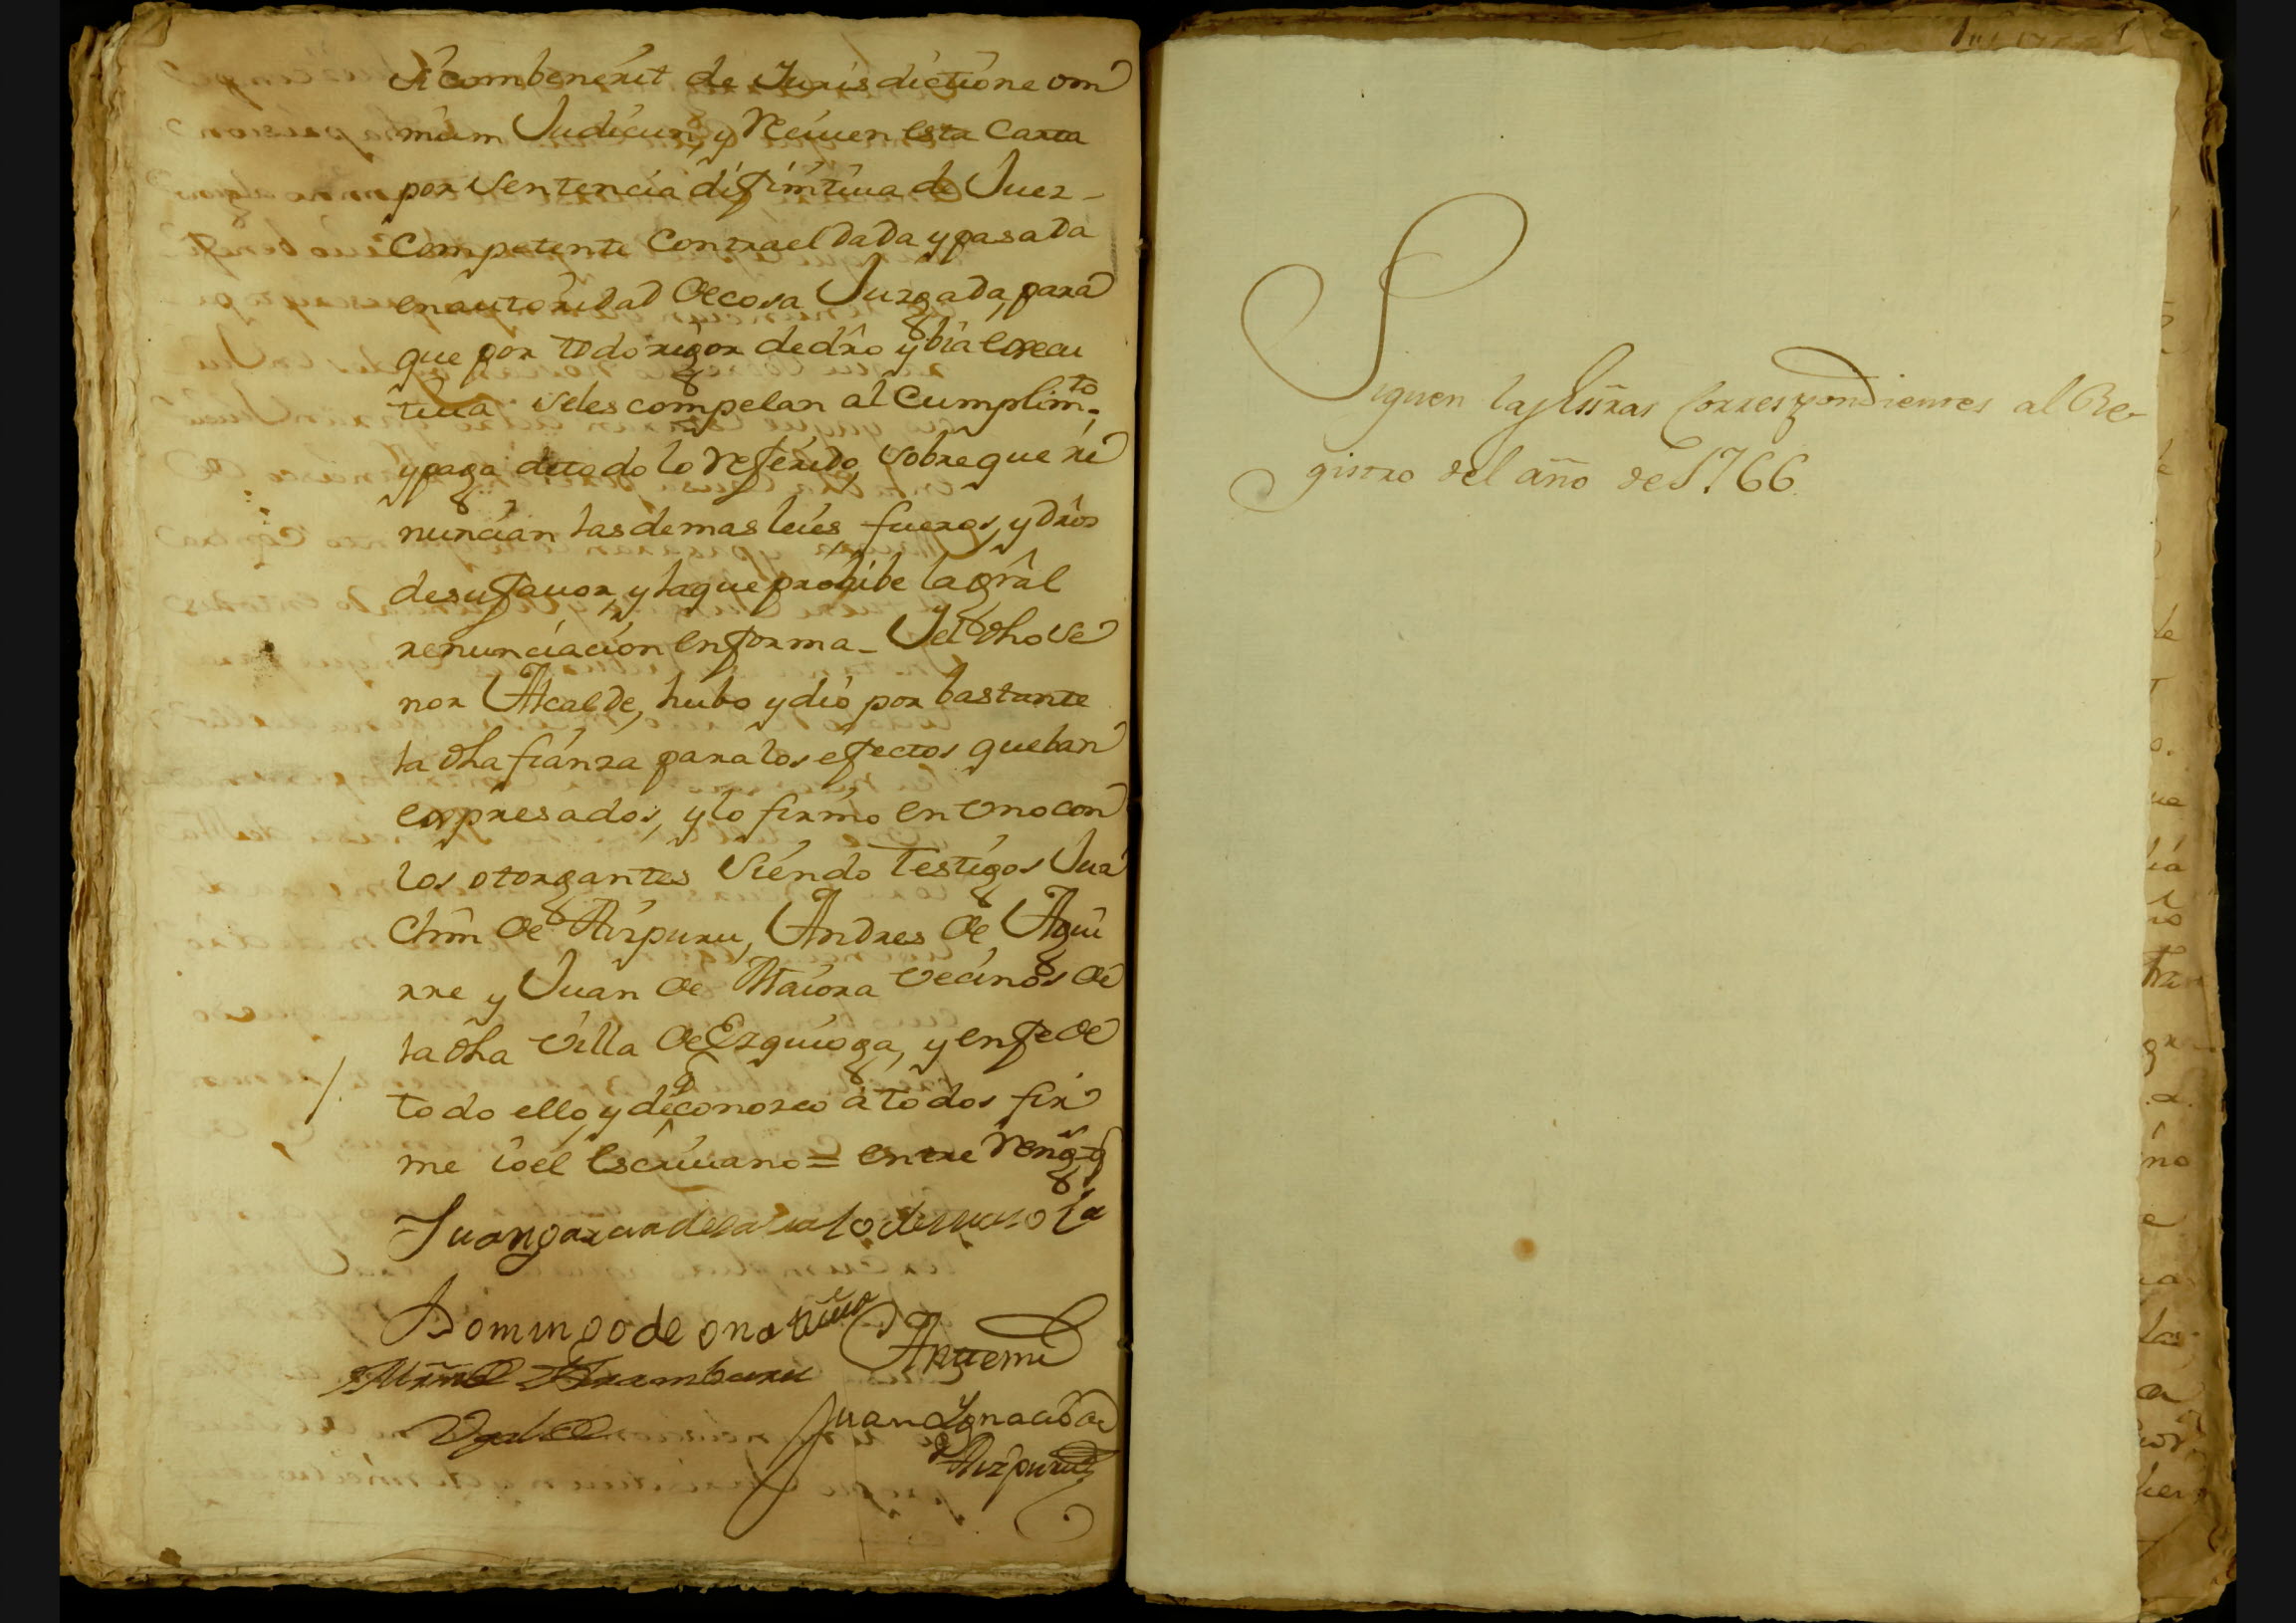 Si combenerit de Jurisdictione om
nium Judicun, y Reciuen esta Carta
por Sentencia difinitiua de Juez
Competente Contra el dada y pasada
en autoridad de cosa Juzgada, para
que por todo rigor de dro y bia execu
tiua seles compelan al Cumplimto.
y paga de todo lo Referido, sobre que re
nuncian las demas leies, fueros, y dros
de su fauor, y la que prohibe la gral
renunciacion en forma_ Y el dho Se
ñor Alcalde, hubo y dió por bastante
la dha fianza para los efectos que ban
expresados, y lo firmó en vno con
los otorgantes Siendo Testigos Jua
chin de Aizpuru, Andres de Agui
rre y Juan de Maiora vecinos de
la dha villa de Ezquioga, y en fe de
todo ello, y de q conozco á todos fir
me io el Escriuano = entre Reng. q
Juan
Domingo de
Antemi
Aramburu
Juan Ignacio de
Aizpuru
Siguen las Essras Correspondientes al Re-
gistro del año de 1766